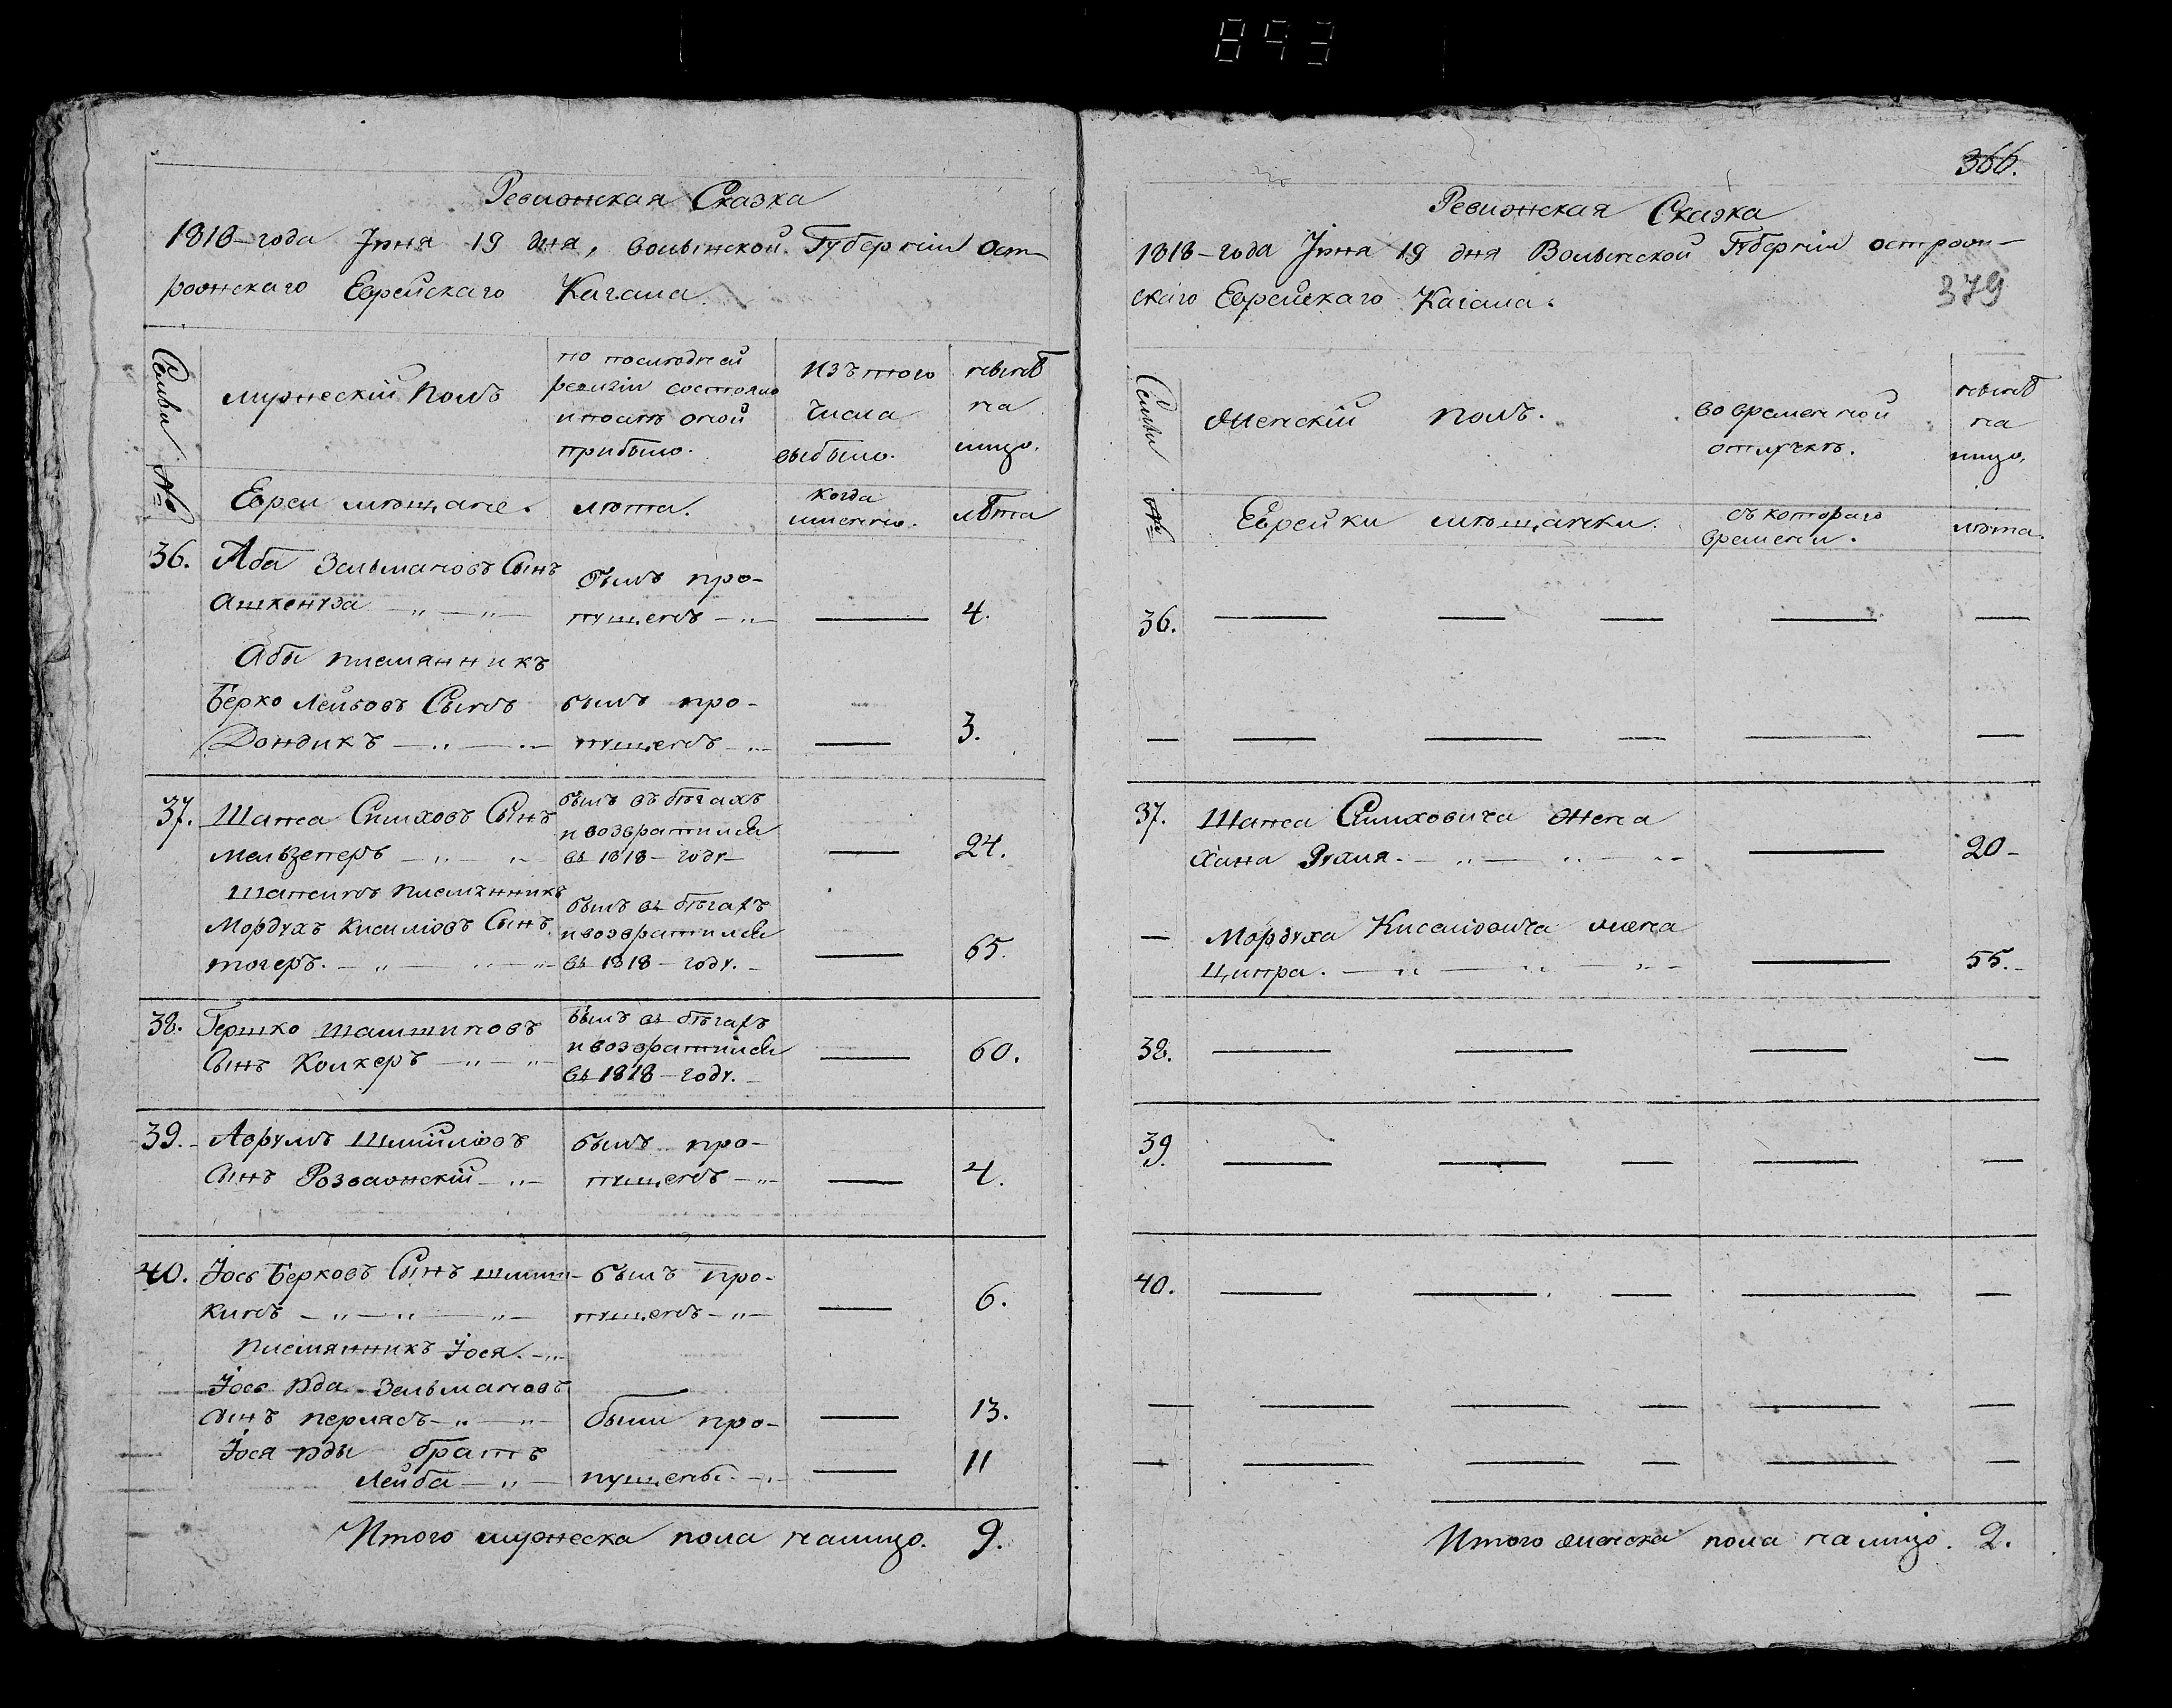 893
Ревизнская Сказка
1818-года Іюня 19 дня, волынской Губерніи Ост-
рожнскаго Еврейскаго Кагала.
Семьи №
мужескій Полъ
по последней
ревизіи состояло
и после оной
прибыло.
изътого
числа
выбыло.
ныне
на
лицо.
Евреи мещане.
лета.
когда
имянно.
лѣта
36. Аба Зельмановъ Сынъ
Ашкенуза — " — " —
былъ про-
пущенъ — " —
4.
Абы племянникъ
Берко Лейбовъ Сынъ
Дондикъ — " — " —
былъ про-
пущенъ — " —
3.
37. Шапса Симховъ Сынъ
Мельзенеръ — " — " —
былъ въ бегахъ
и возвратился
въ 1818 - году -
24.
племянникъ
Мордухъ Кисиліовъ Сынъ
тогеръ. — " — " — " —
былъ въ бегахъ
и возвратился
въ 1818 - году. -
65.
38. Гершко
Сынъ Колкеръ — " — " —
былъ въ бегахъ
и возвратился
въ 1818 - году. -
60.
39. Аврумъ Шмійліовъ
Сынъ — " —
былъ про-
пущенъ — " —
4.
40. Іось Берковъ Сынъ
былъ про-
пущенъ — " —
6.
племянникъ Іося. — " —
Іось Юда Зельмановъ
сынъ — " — " —
были про-
13.
Іося Юды братъ
Лейба — " —
пущены. — " —
11
Итого мужеска пола налицо. 9.
366.
Ревизнская Сказка
1818-года Іюня 19 дня Волынской Губерніи острожн-
скаго Еврейскаго Кагала.
379
Семьи №
Женскій полъ.
во временной
отлучке.
ныне
на
лицо.
Еврейки мещанки.
съ котораго
времени.
лета.
36.
37. Шапса Симховича жена
Хана Рухля. — " — " — " —
20 -
— Мордуха Кисаліовича жена
Ципра. — " — " — " —
55. -
38.
39.
40.
Итого женска пола на лицо. 2.